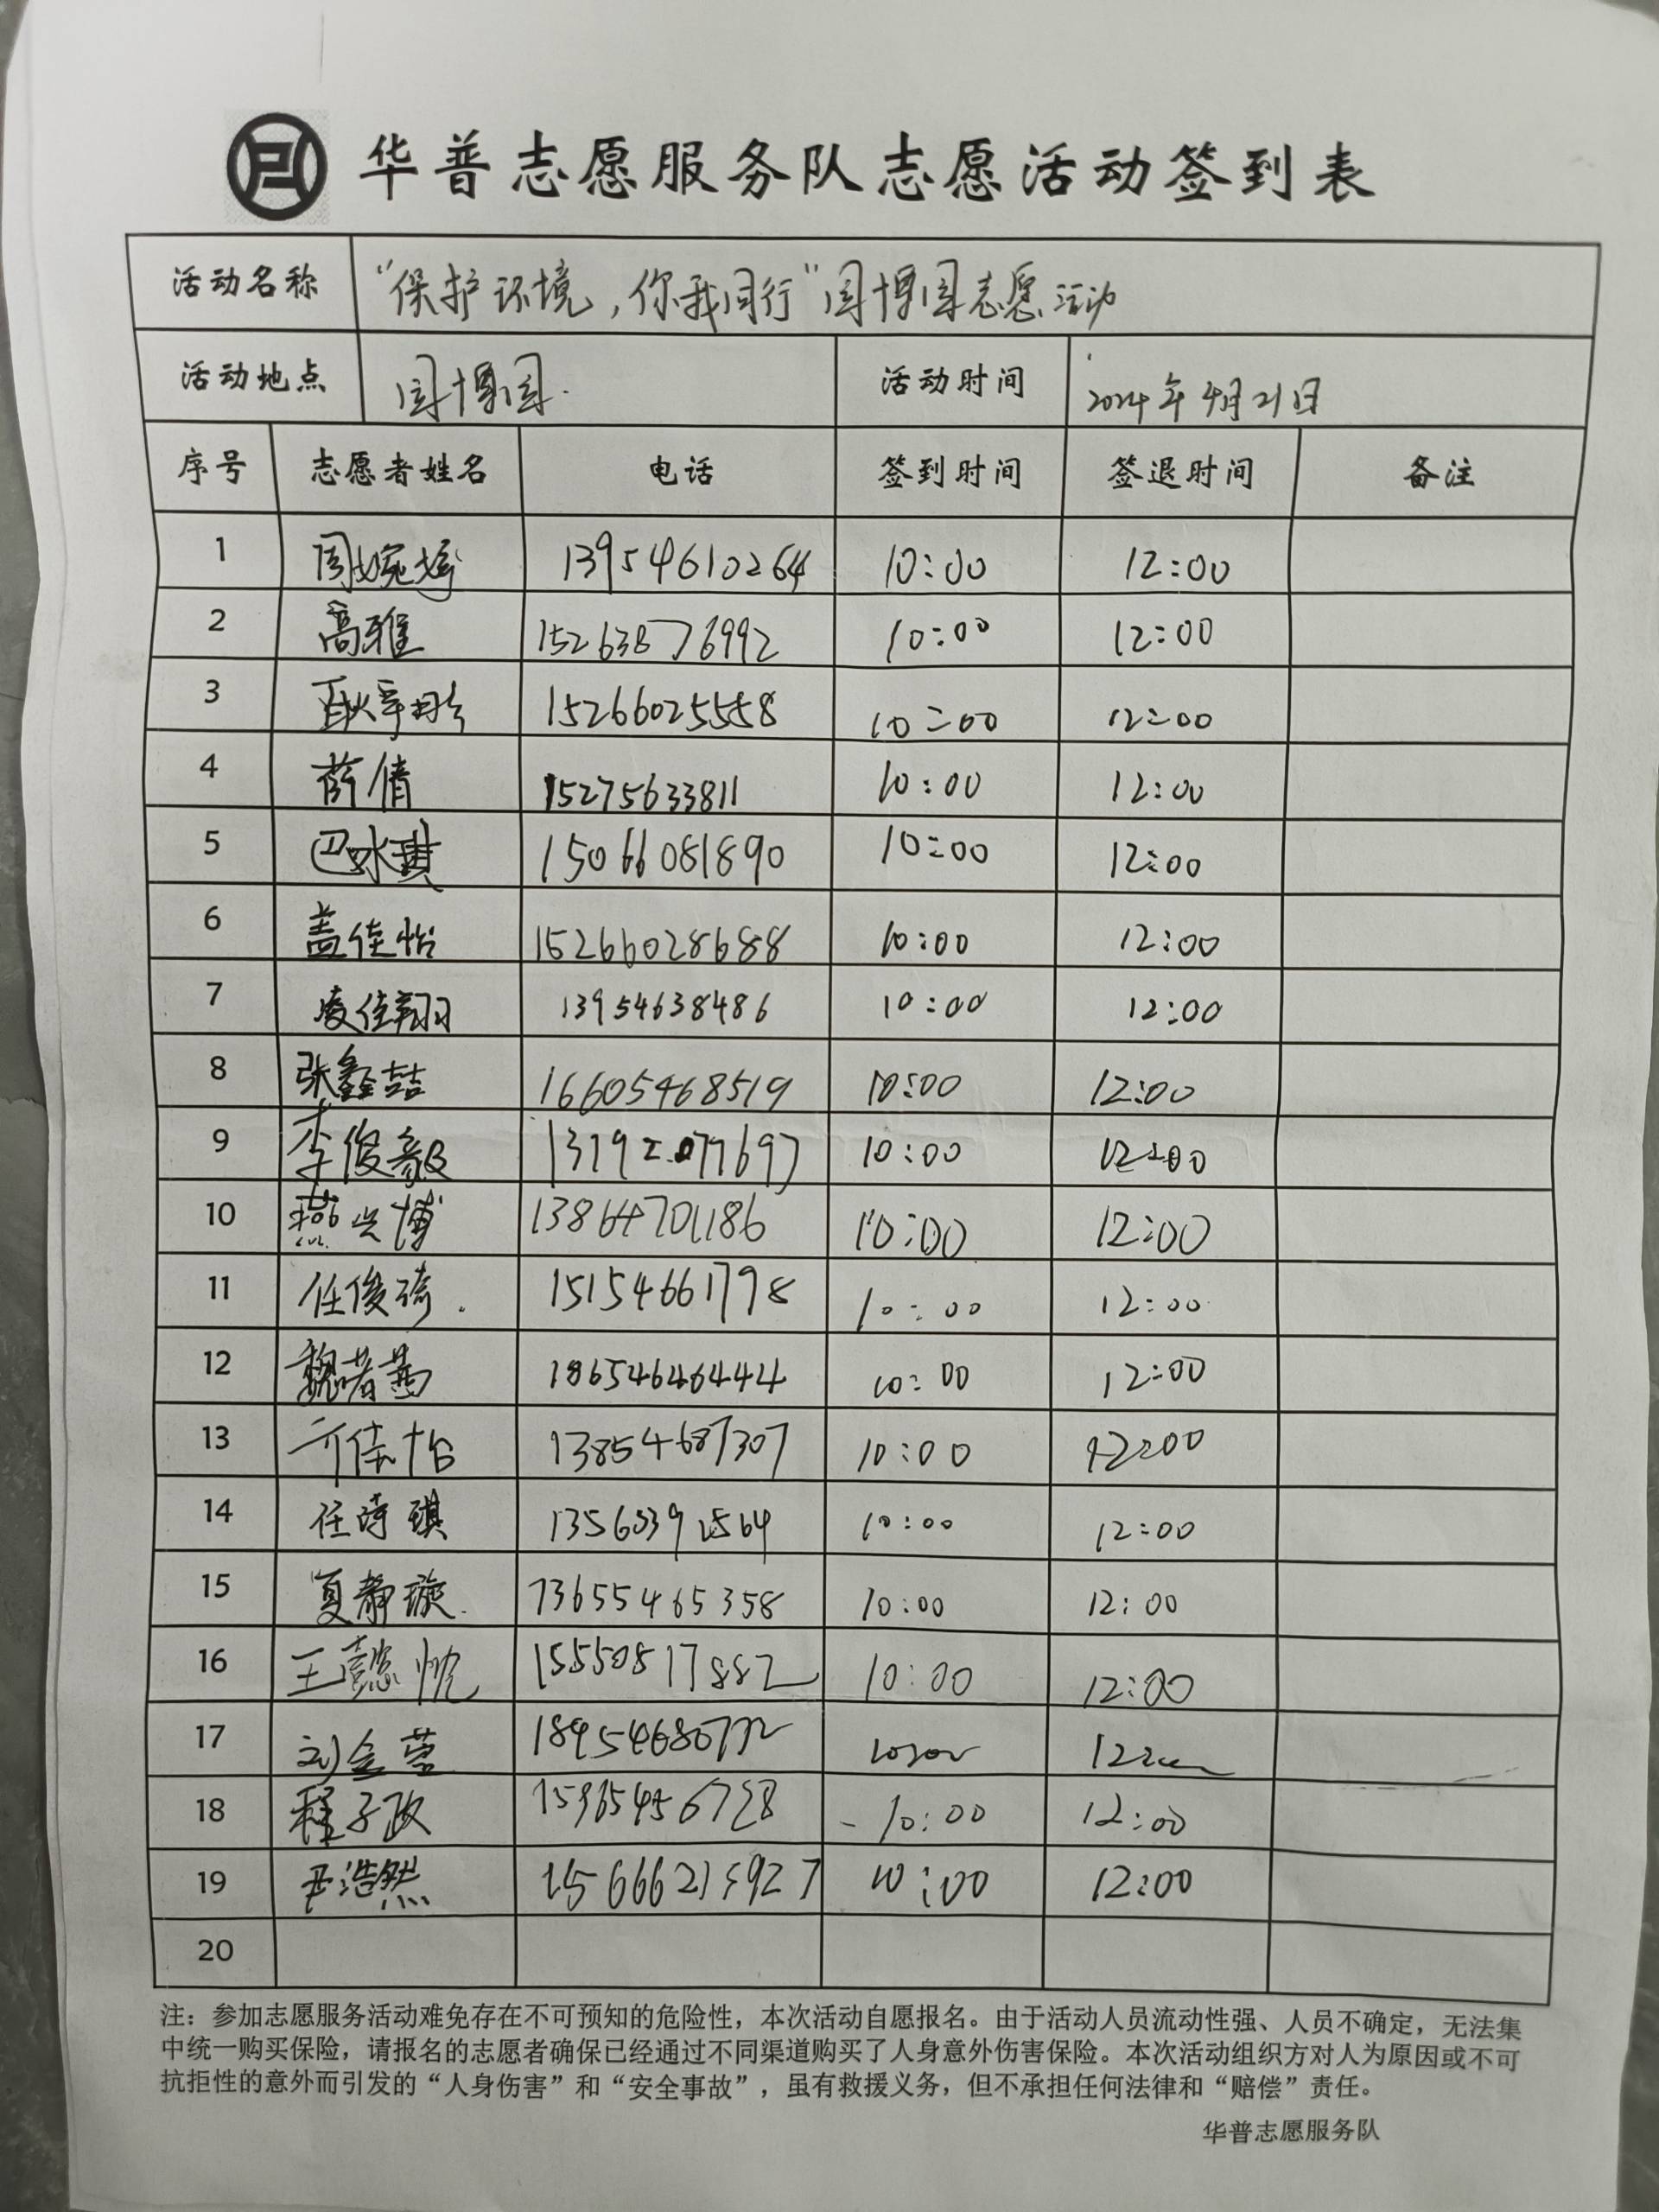 华普志愿服务队志愿活动签到表
活动名称 “保护环境,你我同行”园博园志愿活动
活动地点 园博园. 活动时间 2024年4月21日
序号 志愿者姓名 电话 签到时间 签退时间 备注
1 周婉婷 13954610264 10:00 12:00
2 高雅 15263876992 10:00 12:00
3 15266025558 10:00 12:00
4 薛倩 15275633811 10:00 12:00
5 巴冰琪 15066081890 10:00 12:00
6 盖佳怡 15266028688 10:00 12:00
7 凌佳翔 13954638486 10:00 12:00
8 张鑫喆 16605468519 10:00 12:00
9 李俊毅 10:00 12:00
10 燕兴博 13864701186 10:00 12:00
11 任俊琦. 15154661798 10:00 12:00
12 魏若茜 18654646444 10:00 12:00
13 亓佳怡 13854687307 10:00 12:00
14 任诗琪 10:00 12:00
15 夏静璇. 13655465358 10:00 12:00
16 王懿忱 15550817882 10:00 12:00
17 刘金莹
18 程子政 10:00 12:00
19 尹浩然 10:00 12:00
20
注：参加志愿服务活动难免存在不可预知的危险性，本次活动自愿报名。由于活动人员流动性强、人员不确定，无法集
中统一购买保险，请报名的志愿者确保已经通过不同渠道购买了人身意外伤害保险。本次活动组织方对人为原因或不可
抗拒性的意外而引发的“人身伤害”和“安全事故”，虽有救援义务，但不承担任何法律和“赔偿”责任。
华普志愿服务队